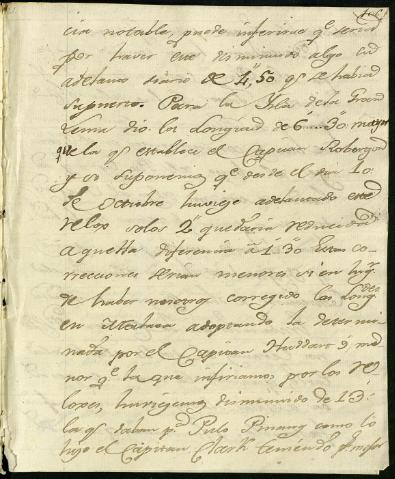 cia notable, puede inferirse qe seria
por haver este disminuido algo su
adelanto diario de 4", 50 qe se habia
supuesto. Para la Isla de la Gran
dio la Longitud de 6' 30" mayor
que la qe establece el Capitan
y si suponemos qe desde el dia 10
de Octubre huviese adelantado este
relox solos 2" quedaria reducida
aquella diferencia á 1' 30" Estas co-
rrecciones serian menores si en lugr
de haber nosotros corregido las Longdes
en adoptando la determi-
nada por el Capitan Huddart 9' me
nor qe la que inferiamos por los re-
loxes, huviesemos disminuido de 13'
la qe daban pa Pulo Pinang como lo
hizo el Capitan Clark